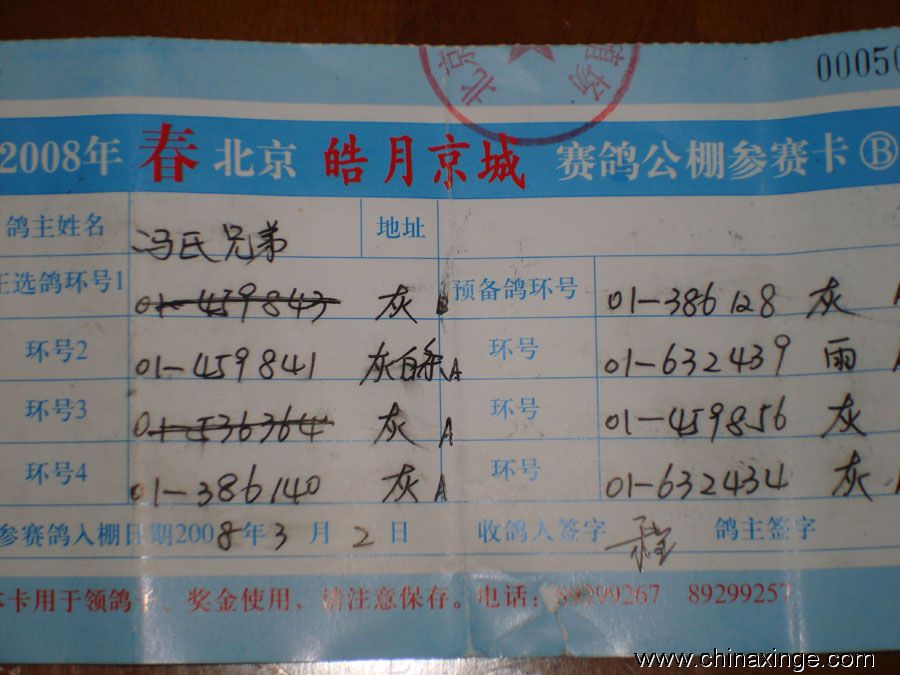 00050
北京 棚场
2008年 春 北京 皓月京城 赛鸽公棚参赛卡 Ⓑ
鸽主姓名 冯氏兄弟 地址
正选鸽环号1 01-459843 灰 B 预备鸽环号 01-386128 灰
环号2 01-459841 灰白条 A 环号 01-632439 雨
环号3 01-536364 灰 A 环号 01-459856 灰
环号4 01-386140 灰 A 环号 01-632434 灰
参赛鸽入棚日期2008年3月2日 收鸽人签字 程 鸽主签字
本卡用于领鸽子、奖金使用，请注意保存。电话：89299267 89299257
www.chinaxinge.com